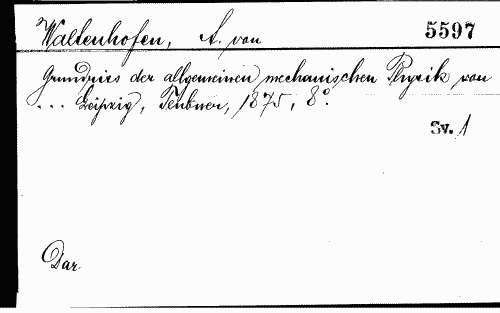 Waltenhofen, A. von 5597
Grundriss der allgemeinen mechanischen Physik von
... Leipzig, Teubner, 1875, 8°.
Sv. 1
Dar